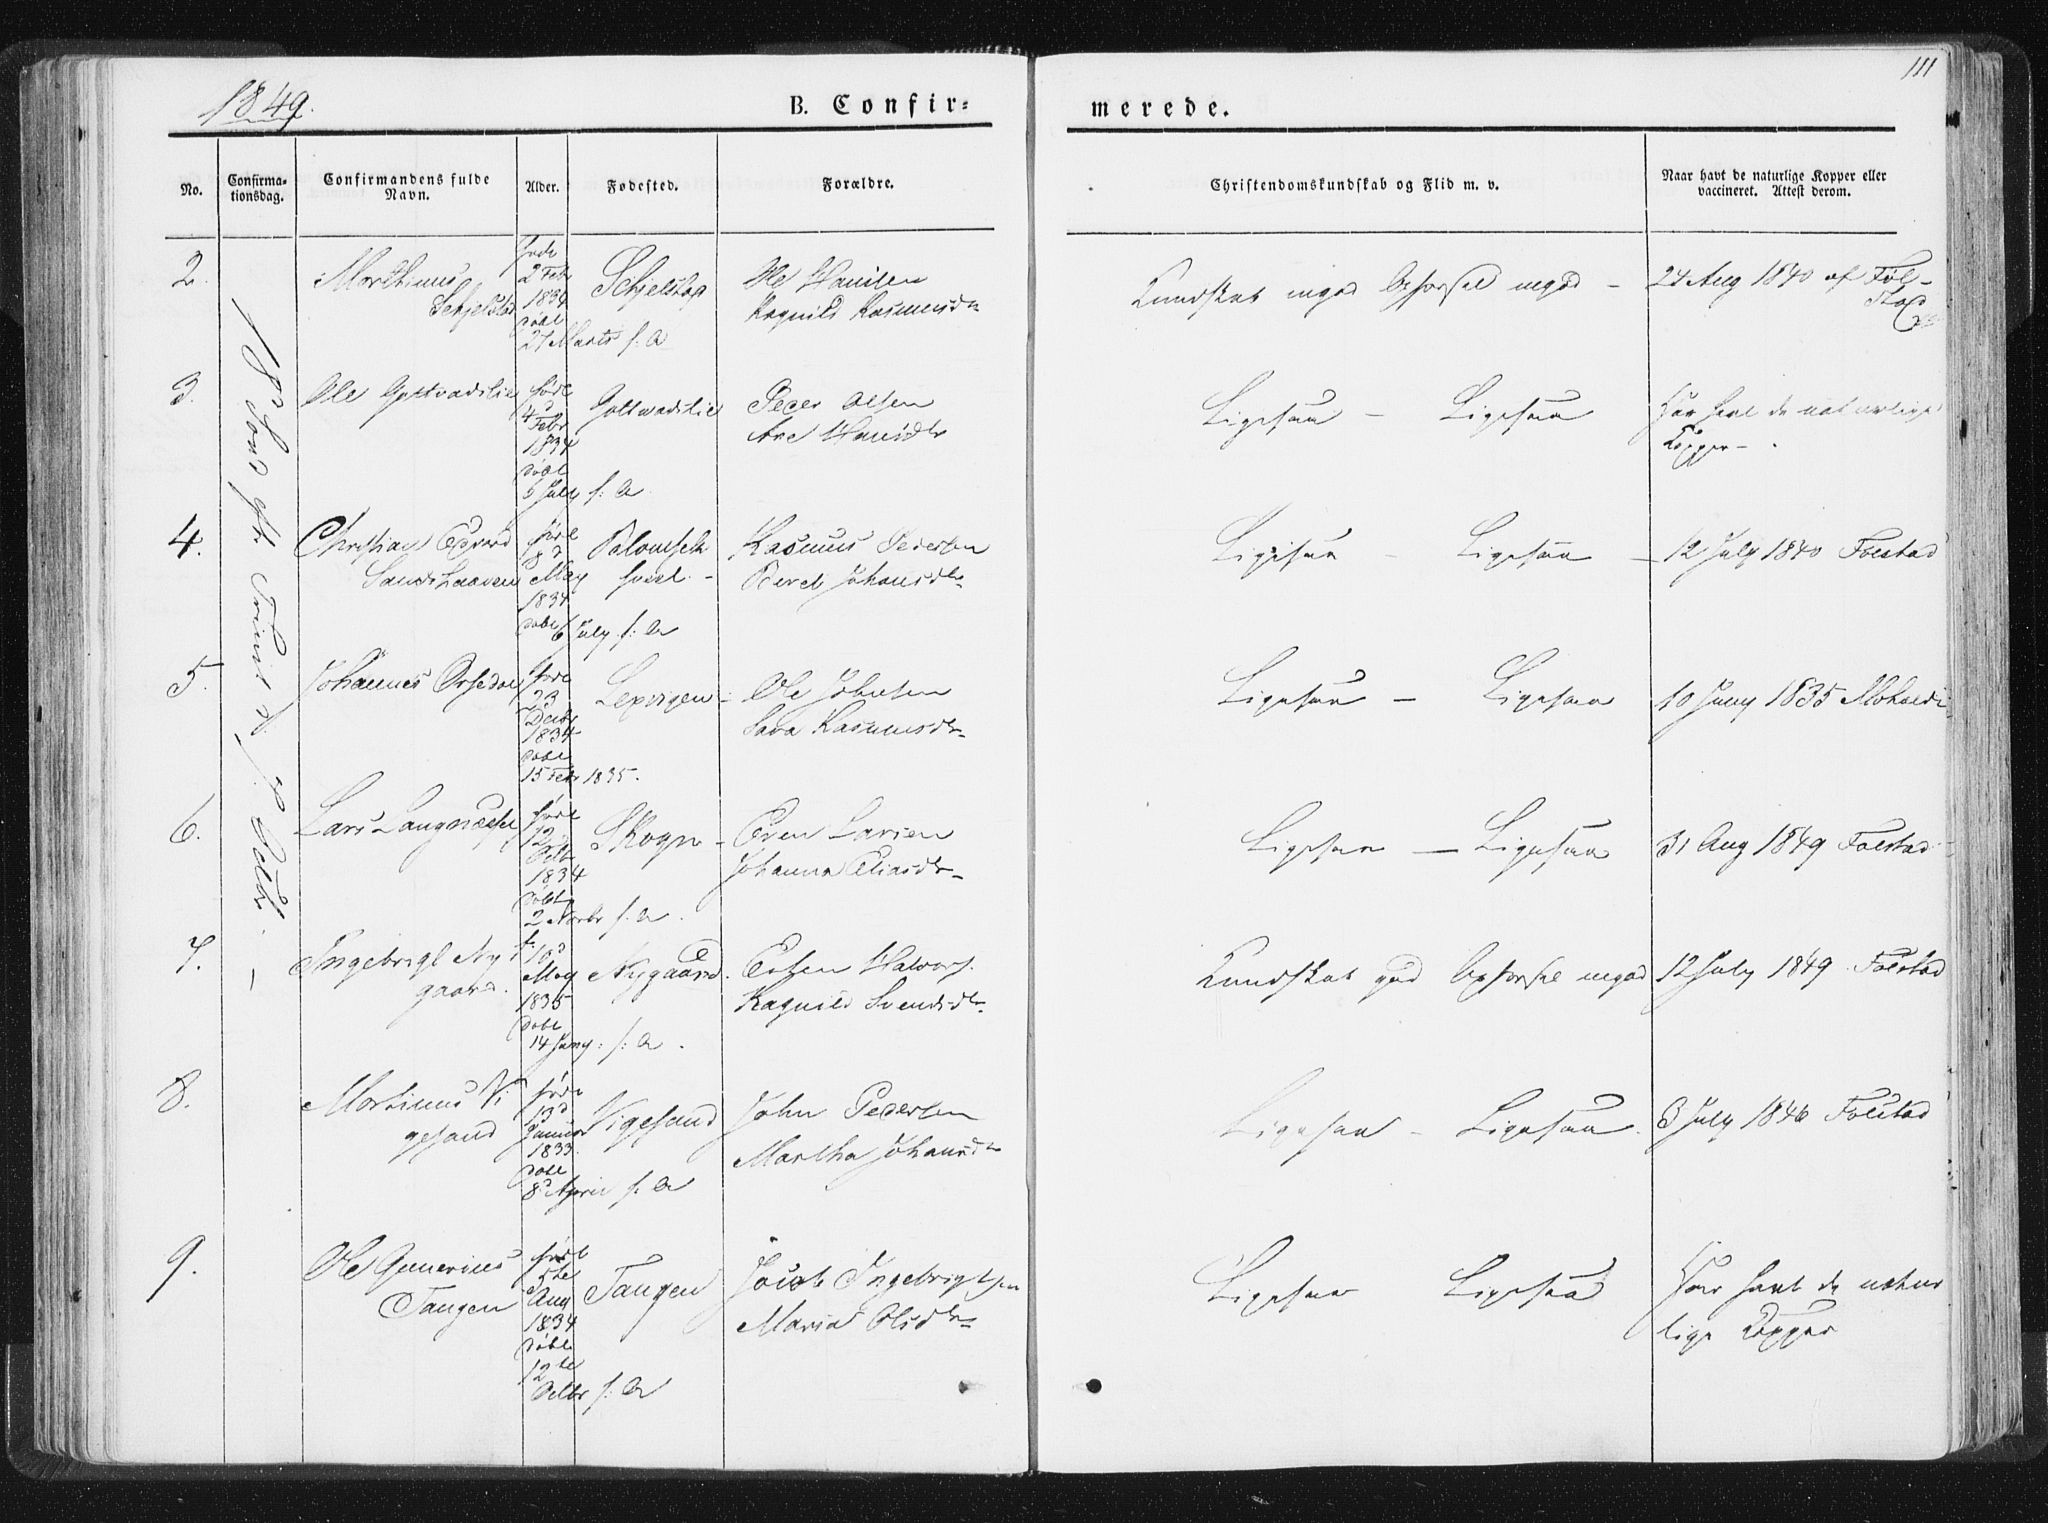 1849.
B. Confir=
merede.
111
No.
Confirma-
tionsdag.
Confirmandens fulde
Navn.
Alder.
Fødested.
Forældre.
Christendomskundskab og Flid m. v.
Naar havt de naturlige Kopper eller
vaccineret. Attest derom.
2.
Morthinus
Schjelstad
føde
2 Febr
1834
døbt
27 Marts f: A
Schjelstad
Ole Hansen
Ragnild Rasmusdr
Kundskab mgod Opførsel mgod -
24 Aug 1840 af Føl-
stad
3.
Ole
født
4 Febr
1834
døbt
5 July f: A
Peder Olsen
Ane Hansdr
Ligesaa - Ligesaa
Har havt de naturlige
Kopper -
4.
Christian Edvard
født
18d
May
1834
døbt 6 July f: A
Rasmus Pedersen
Beret Johansdr
Ligesaa - Ligesaa -
12 July 1840 Folstad
5.
Johannes
født
23
Decbr
1834
døbt
15 Febr 1835.
Ole Johnsen
Rasmusdr
Ligesaa - Ligesaa
10 Juny 1835
6.
Lars Langnæsset
født
12
Octb
1834
døbt
2 Novbr f: A
Skogn -
Even Larsen
Johanna Eliasdr
Ligesaa - Ligesaa
31 Aug 1849 Folstad
7.
Ingebrigt Ny
gaard.
f.
10d
May
1835
døbt
14 Juny: f: A
Nygaard.
Esten Halvors.
Ragnild Svendsdr
Kundskab god Opførsel mgod
12 July 1849 Folstad
8.
Morthinus Vi
gesand
født
13d
Januar
1833
døbt
8d April f: A
Vigesand
John Pedersen
Martha Johansdr
Ligesaa - Ligesaa
3 July 1846 Folstad
9.
Ole Gunerius
Tangen
født
5te
Aug
1834
døbt
12te
Octbr f: A
Tangen
Jacob Ingebrigtsen
Maria Olsdr
Ligesaa Ligesaa
Har havt de natur
lige Kopper